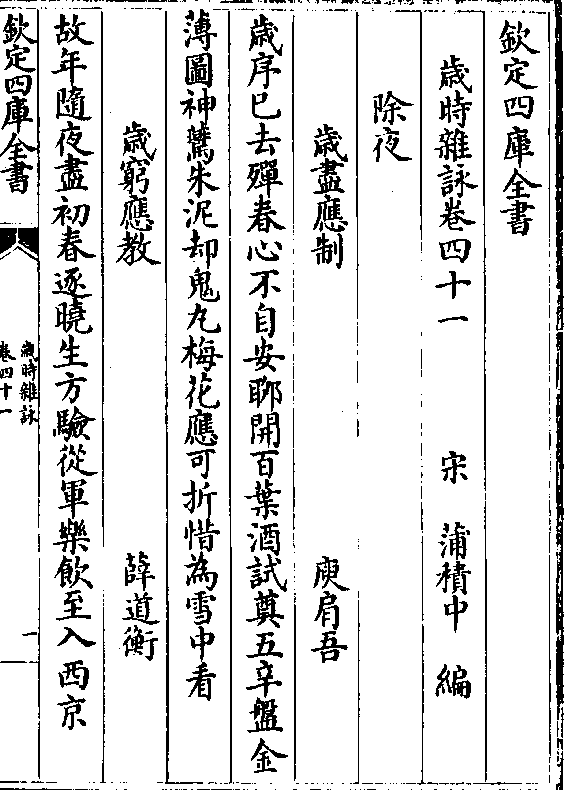 欽定四庫全書
歲時雜詠卷四十一　宋　蒲積中　編
除夜
歲盡應制　庾肩吾
歲序已去殫春心不自安聊開百葉酒試奠五辛盤金
薄圖神鷰朱泥却鬼丸梅花應可折惜為雪中看
歲窮應教　薛道衡
故年隨夜盡初春逐曉生方驗從軍樂飲至入西京
欽定四庫全書
歲時雜詠
卷四十一
一